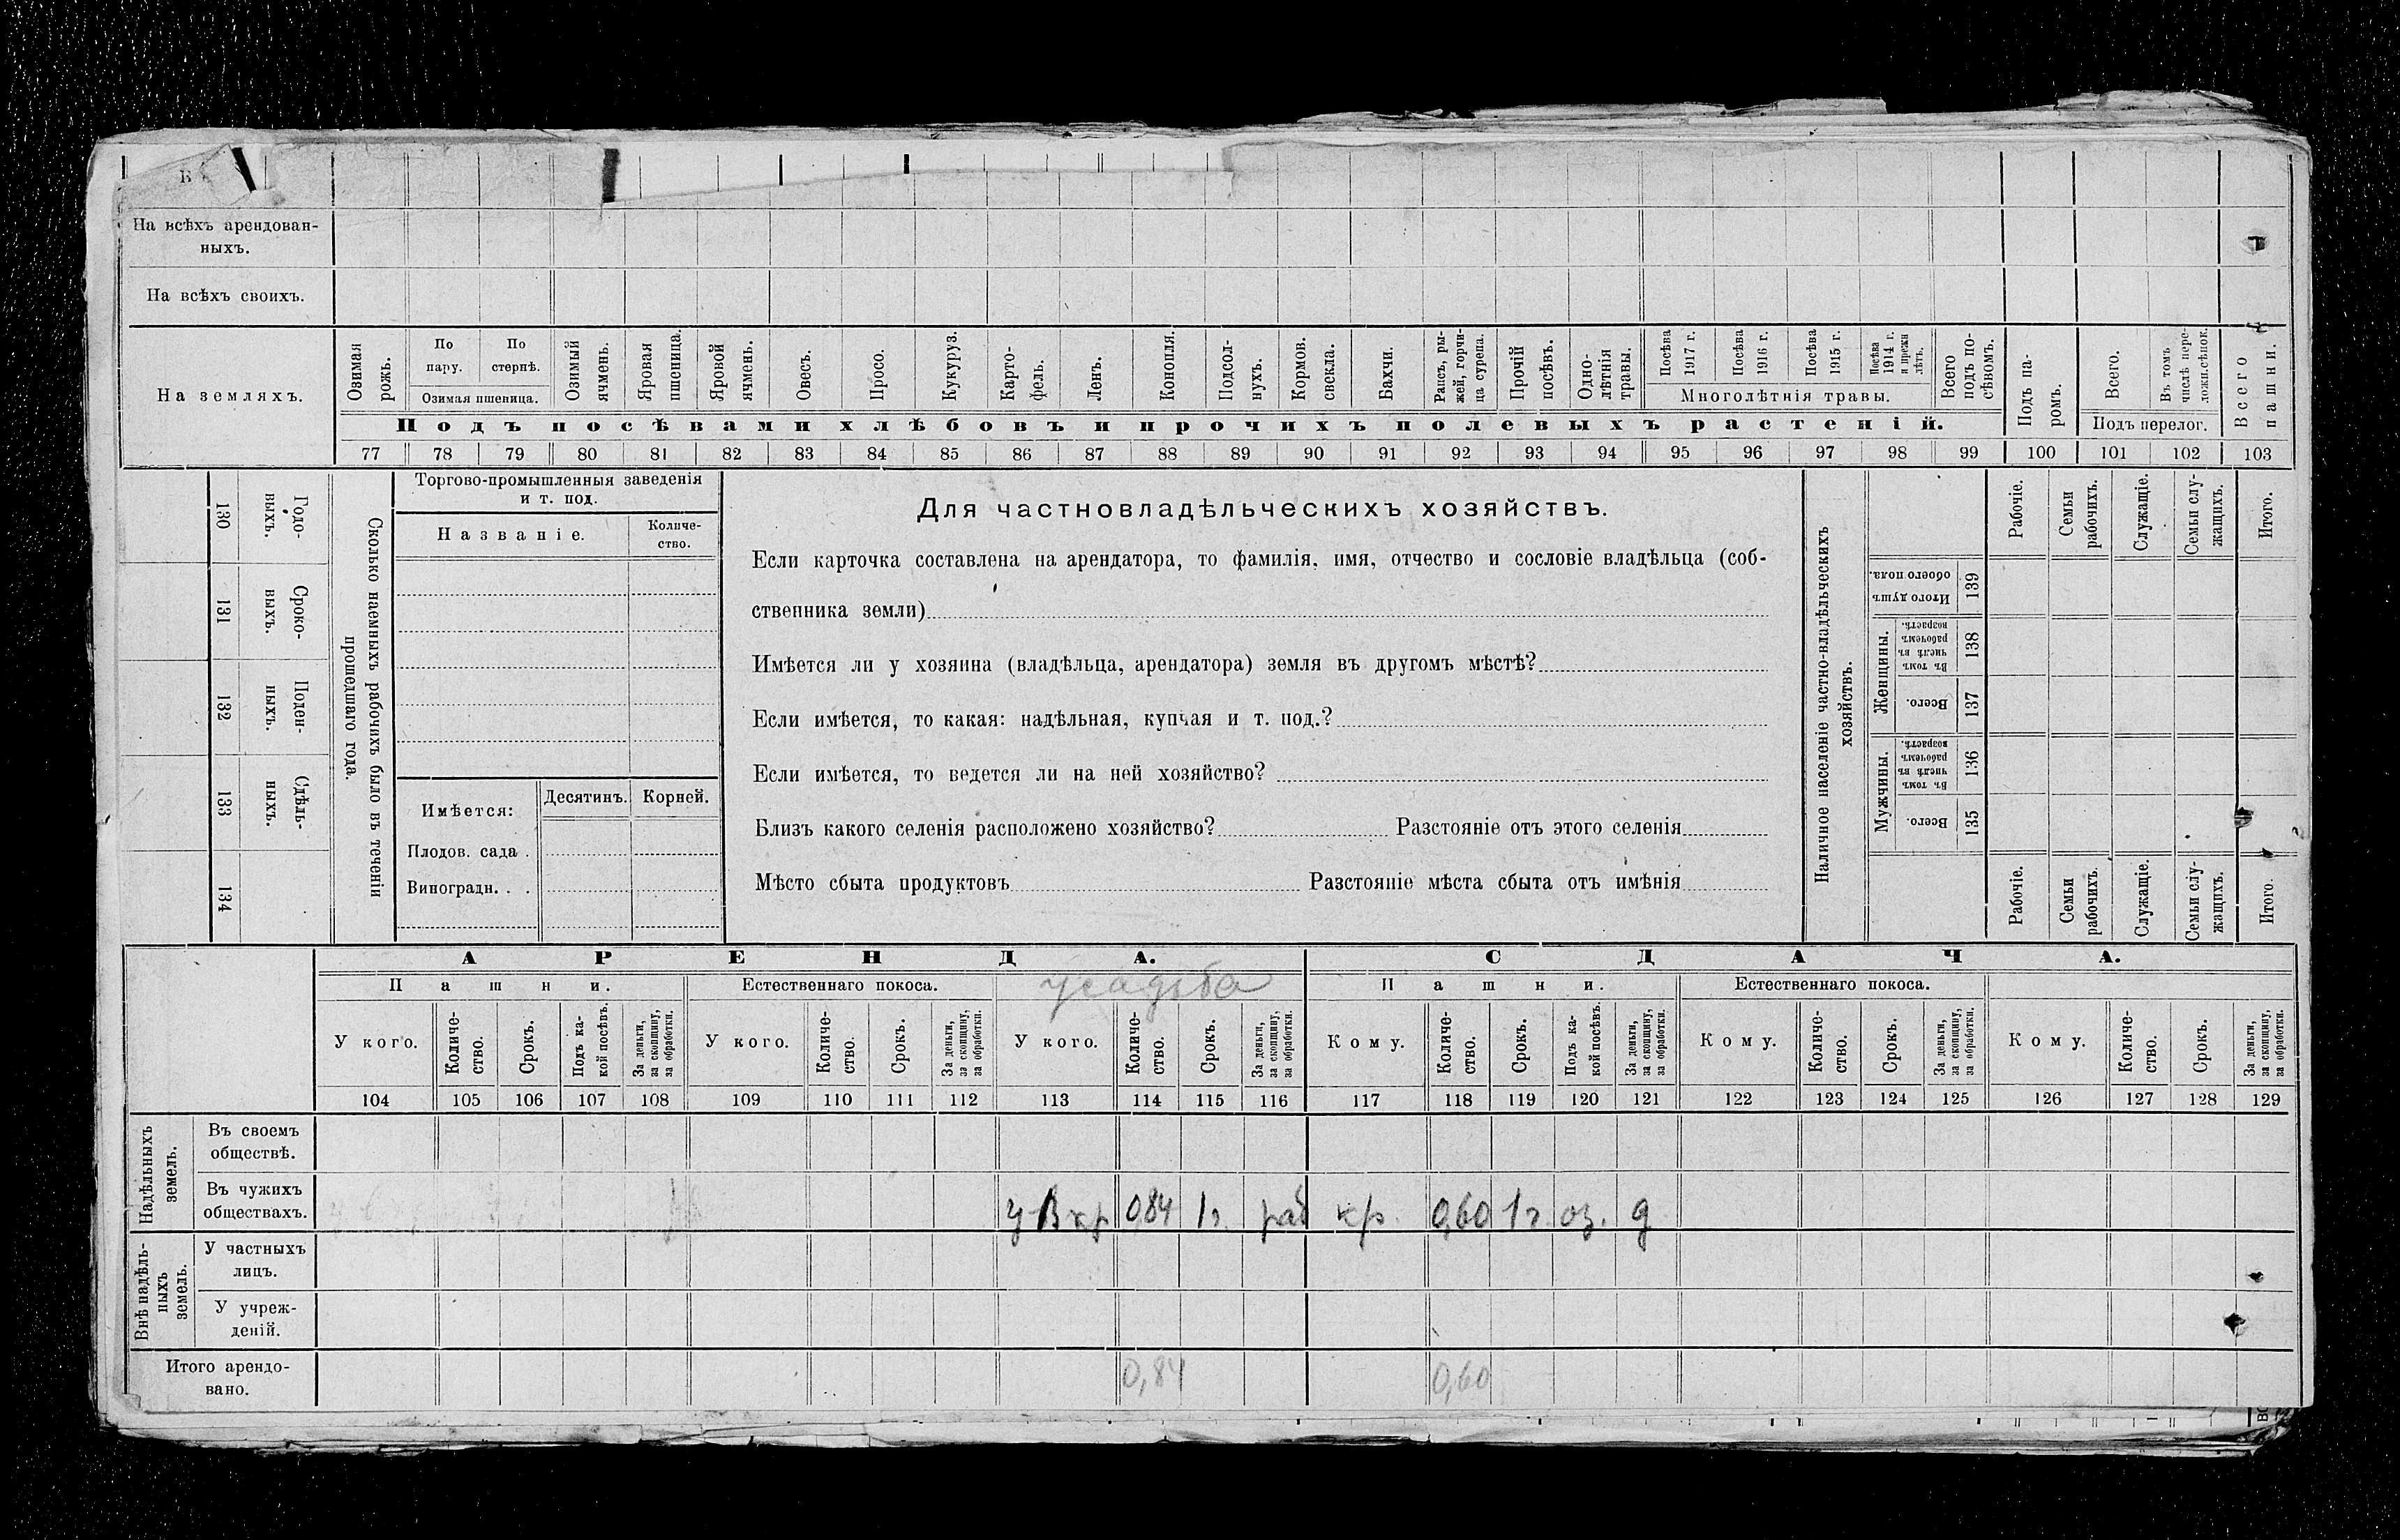 На всѣхъ арендован-
ныхъ.
На всѣхъ своихъ.
На земляхъ.
Озимая рожь.
По пару.
По стернѣ.
Озимая пшеница.
Озимый ячмень.
Яровая пшеница.
Яровой ячмень.
Овесъ.
Просо.
Кукуруз.
Карто-
фель.
Ленъ.
Конопля.
Подсол-
нухъ.
Кормов.
свекла.
Бахчи.
Рапсъ, ры-
жей, горчи-
ца сурепа.
Прочій
посѣвъ.
Одно-
лѣтнія
травы.
Посѣва
1917 г.
Посѣва
1916 г.
Посѣва
1915 г.
Посѣва
1914 г.
и прежн
лѣтъ.
Многолѣтнія травы.
Всего
подъ по-
сѣвомъ.
Подъ па-
ромъ.
Всего.
Въ томъ
числѣ пере-
ложн.сѣнок.
Подъ перелог.
Всего
пашни.
Подъ посѣвами хлѣбовъ и прочихъ полевыхъ растеній.
77 78 79 80 81 82 83 84 85 86 87 88 89 90 91 92 93 94 95 96 97 98 99 100 101 102 103
Сколько наемныхъ рабочихъ было въ теченіи
прошедшаго года.
Годо-
выхъ.
130
Сроко-
выхъ.
131
Поден-
ныхъ.
132
Сдѣль-
ныхъ.
133
134
Торгово-промышленныя заведенія
и т. под.
Названіе.
Количе-
ство.
Имѣется:
Десятинъ.
Корней.
Плодов. сада .
Виноградн. . .
Для частновладѣльческихъ хозяйствъ.
Если карточка составлена на арендатора, то фамилія, имя, отчество и сословіе владѣльца (соб-
ственника земли)
Имѣется ли у хозяина (владѣльца, арендатора) земля въ другомъ мѣстѣ?
Если имѣется, то какая: надѣльная, купчая и т. под.?
Если имѣется, то ведется ли на ней хозяйство?
Близъ какого селенія расположено хозяйство? Разстояніе отъ этого селенія
Мѣсто сбыта продуктовъ Разстояніе мѣста сбыта отъ имѣнія
Наличное населеніе частно-владѣльческихъ
хозяйствъ.
Рабочіе.
Семьи
рабочихъ.
Служащіе.
Семьи слу-
жащихъ.
Итого.
Итого душъ
обоего пола.
139
Женщины.
Въ томъ
числѣ въ
рабочемъ
возрастѣ.
138
Всего.
137
Мужчины.
Въ томъ
числѣ въ
рабочемъ
возрастѣ.
136
Всего.
135
Рабочіе.
Семьи
рабочихъ.
Служащіе.
Семьи слу-
жащихъ.
Итого.
АРЕНДА.
СДАЧА.
Пашни.
Естественнаго покоса.
усадьба
Пашни.
Естественнаго покоса.
У кого.
Количе-
ство.
Срокъ.
Подъ ка-
кой посѣвъ.
За деньги,
за скопщину,
за обработки.
У кого.
Количе-
ство.
Срокъ.
За деньги,
за скопщину,
за обработки.
У кого.
Количе-
ство.
Срокъ.
За деньги,
за скопщину,
за обработки.
Кому.
Количе-
ство.
Срокъ.
Подъ ка-
кой посѣвъ.
За деньги,
за скопщину,
за обработки.
Кому.
Количе-
ство.
Срокъ.
За деньги,
за скопщину,
за обработки.
Кому.
Количе-
ство.
Срокъ.
За деньги,
за скопщину,
за обработки.
104 105 106 107 108 109 110 111 112 113 114 115 116 117 118 119 120 121 122 123 124 125 126 127 128 129
Надѣльныхъ
земель.
Въ своемъ
обществѣ.
Въ чужихъ
обществахъ.
кр 0,84 1г. раб кр. 0,60 1г оз. д
Внѣ надѣль-
ныхъ
земель.
У частныхъ
лицъ.
У учреж-
деній.
Итого арендо-
вано.
0,84 0,60